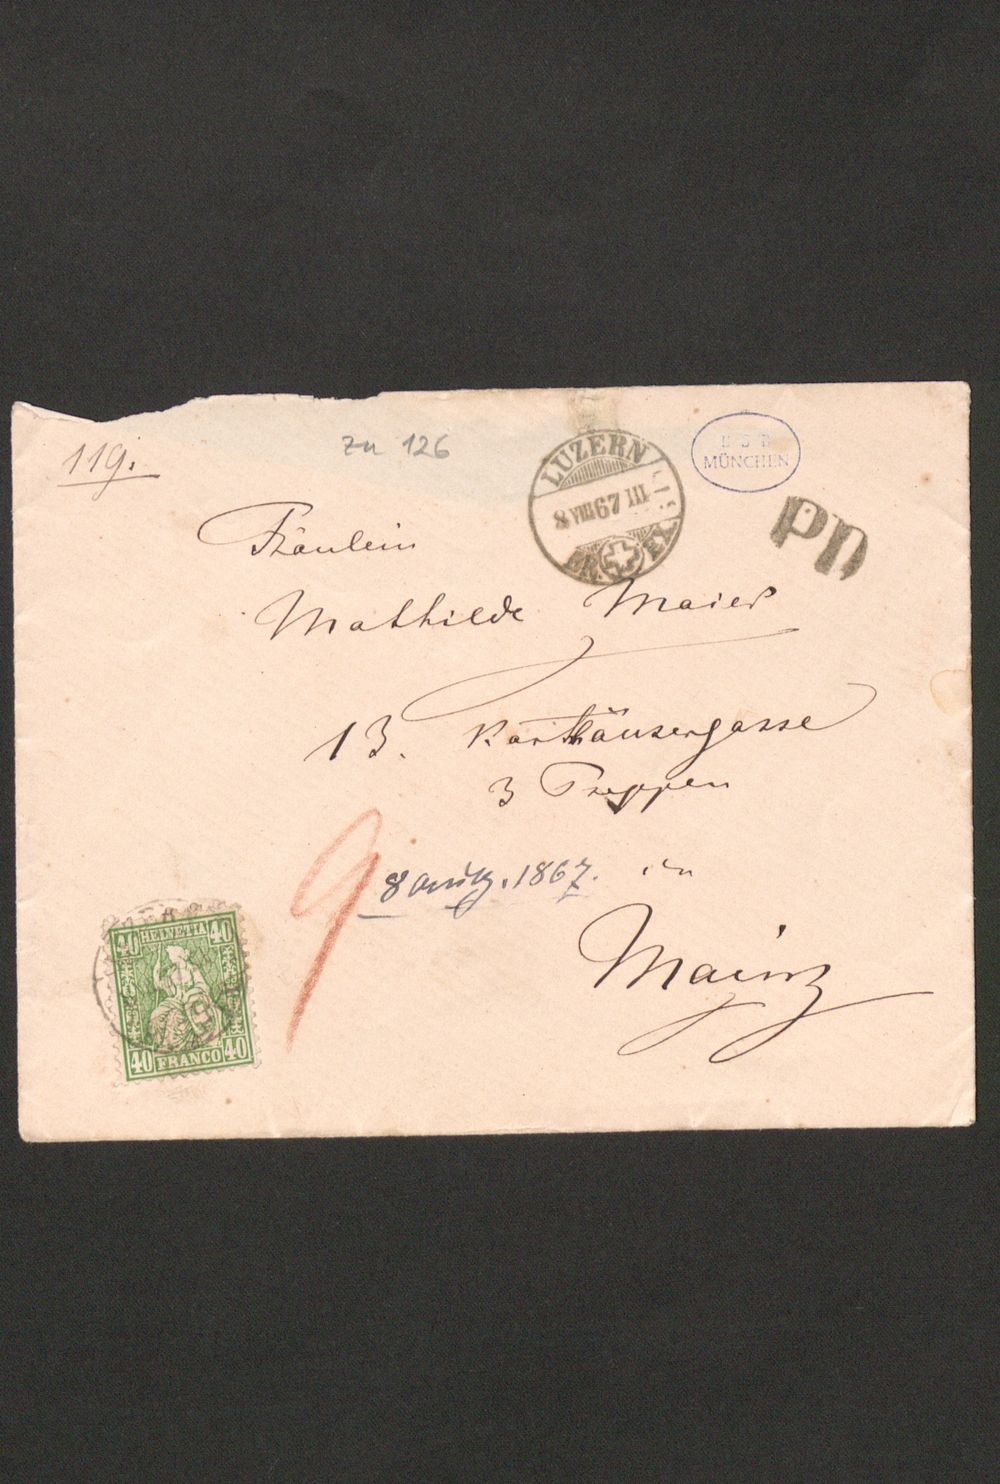 119.
zu 126
LUZERN
8 VIII 67 III
BR. EX
BSB
MÜNCHEN
PD
Fräulein
Mathilde Maier
13. Karthäusergasse
3 Treppen
8 Aug. 1867.
in
Mainz
9
40 HELVETIA 40
40 FRANCO 40